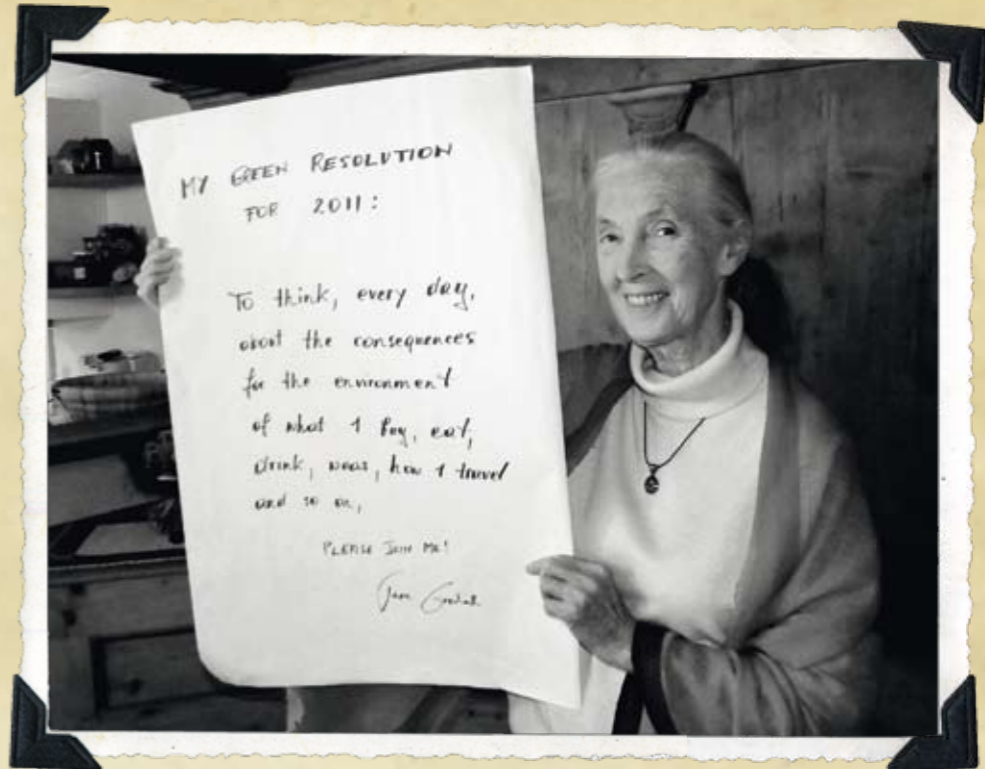 MY GREEN RESOLUTION
FOR 2011:
To think, every day,
about the consequences
for the environment
of what I buy, eat,
drink, wear, how I travel
and so on,
PLEASE JOIN ME!
Jane Goodall